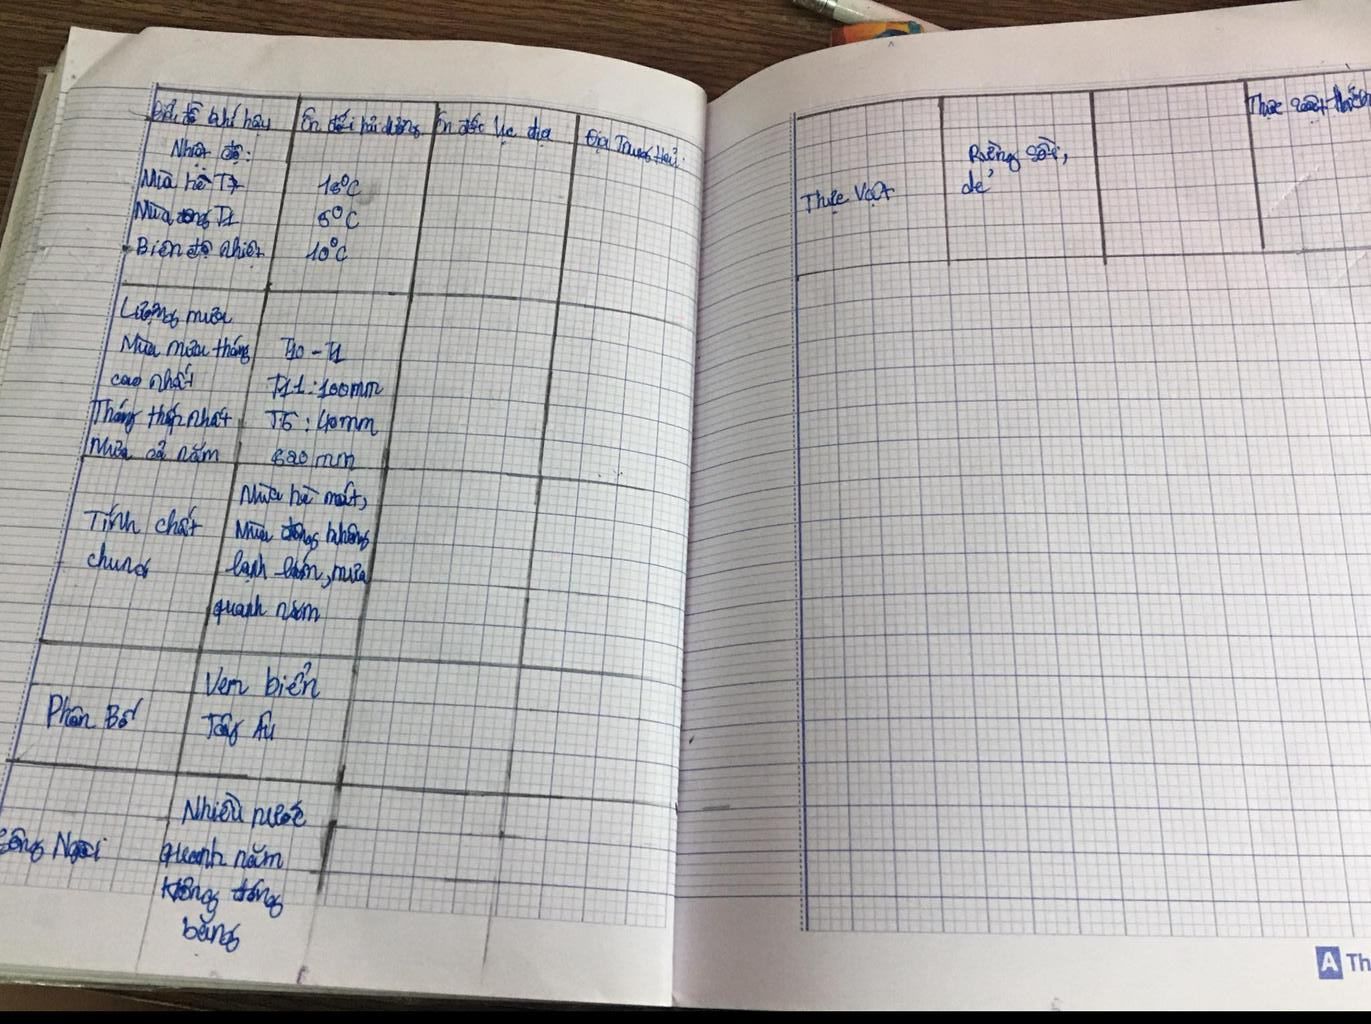 Biểu đồ khí hậu
Ôn đới hải dương
Ôn đới lục địa
Địa Trung Hải
Nhiệt độ:
Mùa hè T7
18°C
Mùa đông T1
8°C
Biên độ nhiệt
10°C
Lượng mưa
Mùa mưa tháng
T10 - T1
cao nhất
T11: 100mm
Tháng thấp nhất
T5: 40mm
Mưa cả năm
820 mm
Tính chất
chung
Mùa hè mát,
Mùa đông không
lạnh lắm, mưa
quanh năm
Phân Bố
Ven biển
Tây Âu
Sông Ngòi
Nhiều nước
quanh năm
không đóng
băng
Thực Vật
Rừng sồi,
dẻ
Thực
A Th